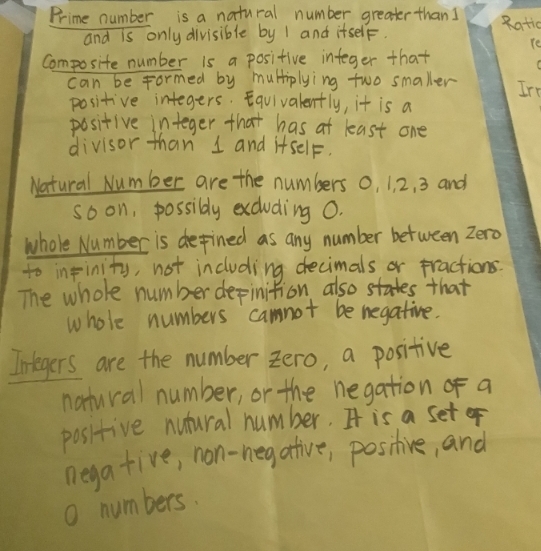 Prime number is a natural number greater than 1
and is only divisible by 1 and itself.
Composite number is a positive integer that
can be formed by multiplying two smaller
positive integers. Equivalently, it is a
positive integer that has at least one
divisor than 1 and itself.
Natural Number are the numbers 0, 1, 2, 3 and
so on, possibly excluding 0.
Whole Number is defined as any number between Zero
to infinity, not including decimals or fractions.
The whole number definition also states that
whole numbers cannot be negative.
Integers are the number zero, a positive
natural number, or the negation of a
positive nutural number. It is a set of
negative, non-negative, positive, and
0 numbers.
Ratio
re
Irr